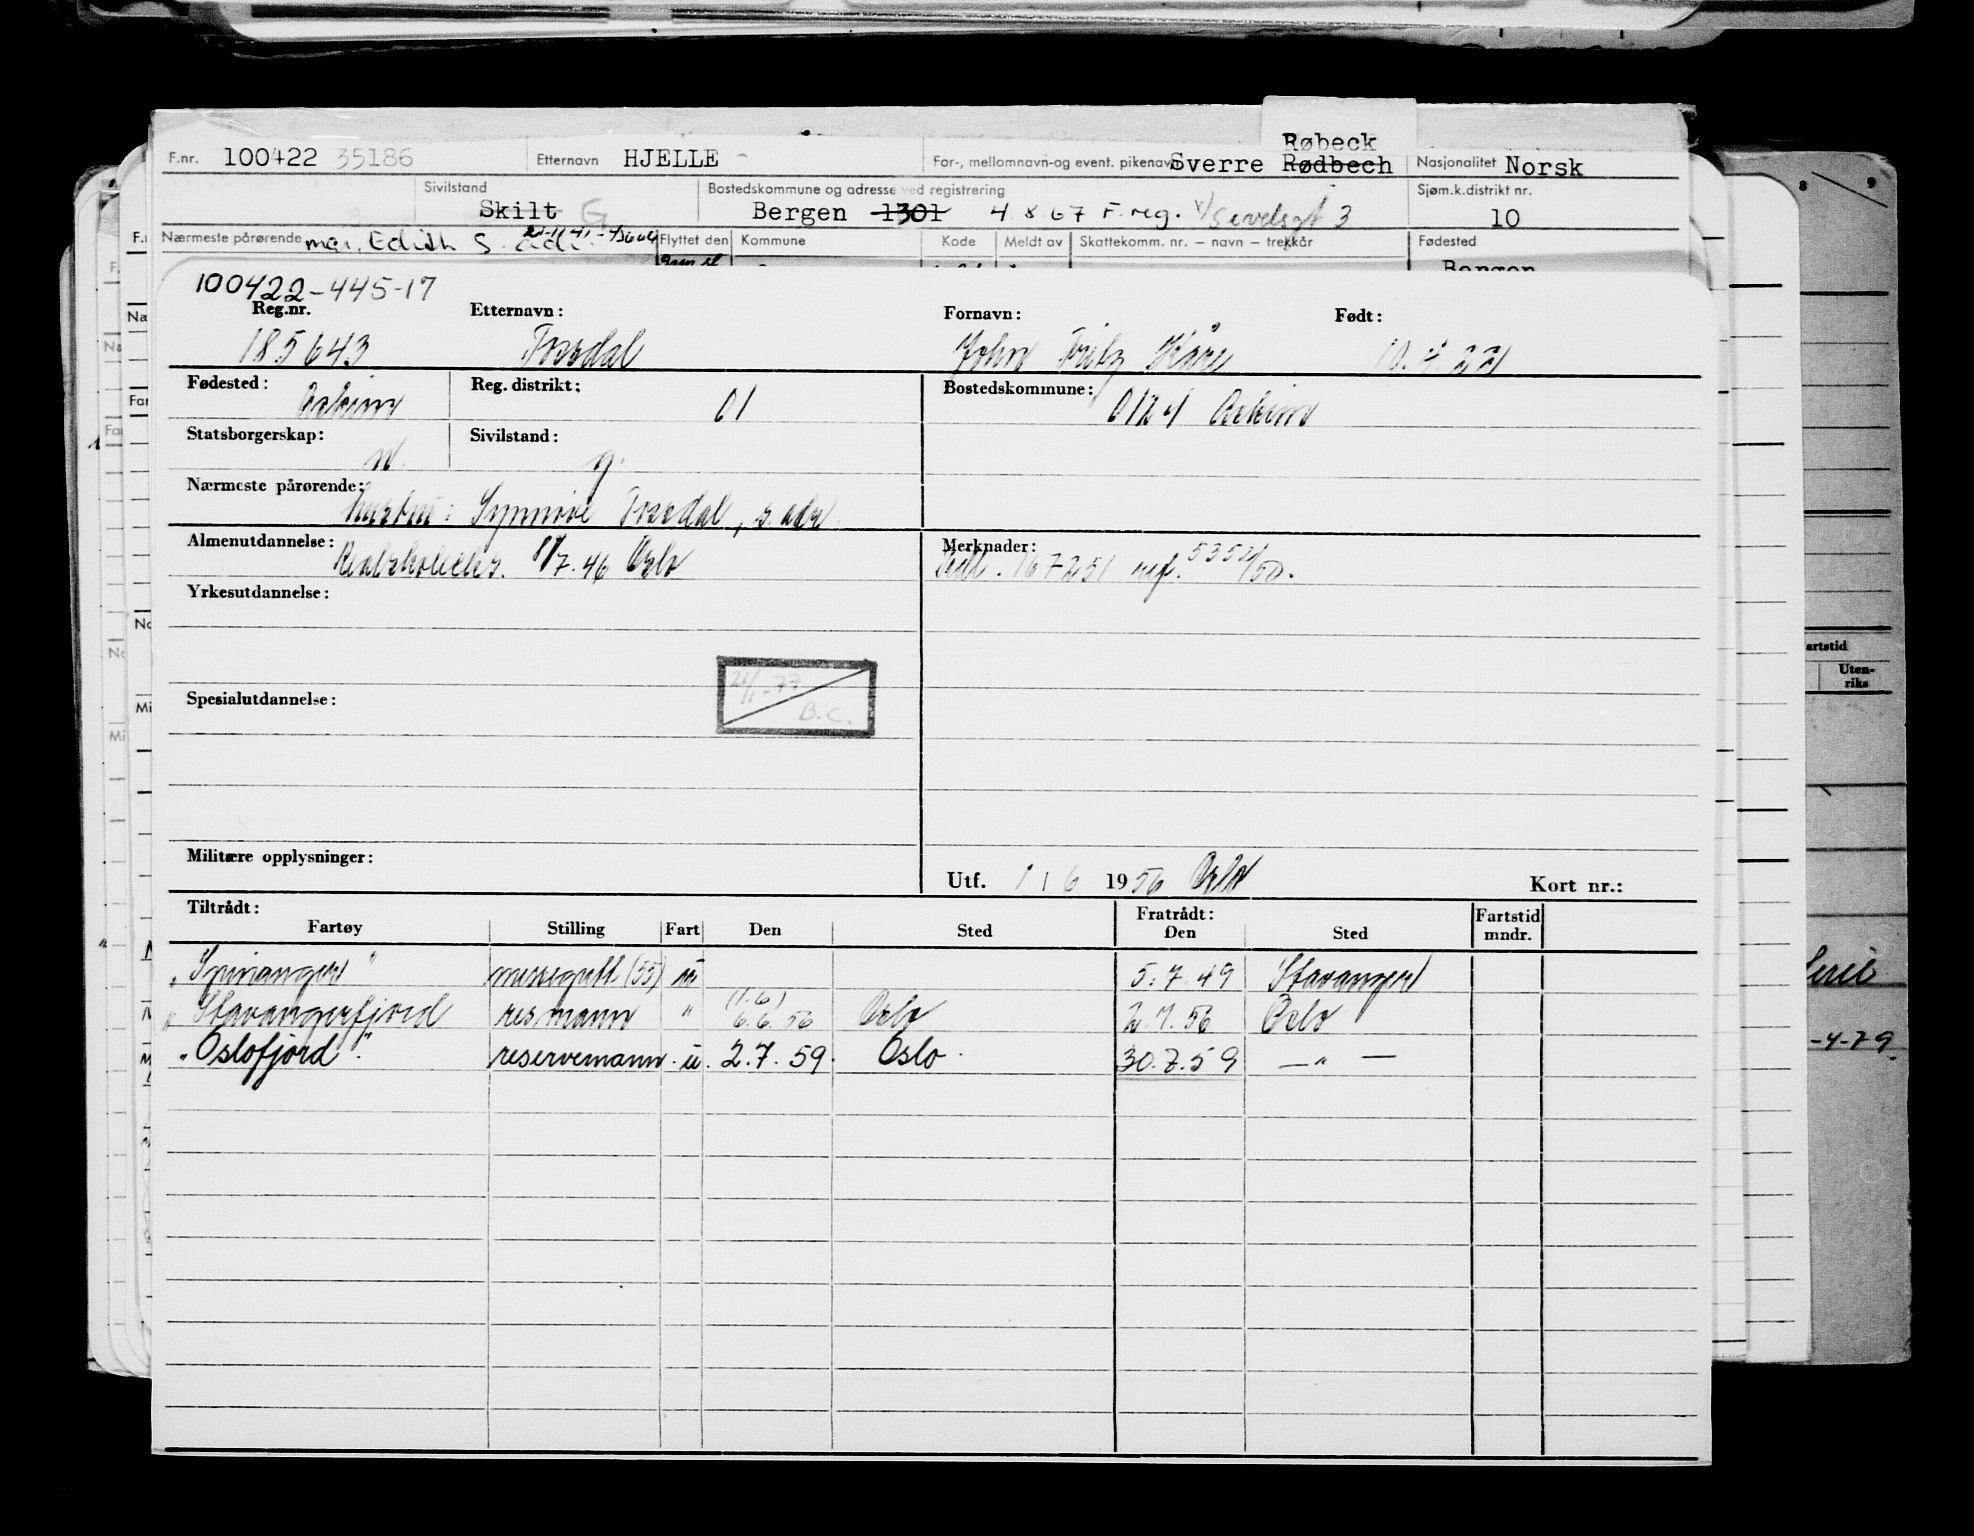 F.nr. 100422 35186 Etternavn HJELLE - For-, mellomnavn-og event. pikenavn Sverre Rødbech Røbeck Nasjonalitet Norsk
Sivilstand Skilt G Bostedskommune og adresse ved registrering Bergen 1301 4.8.67 F.reg. Sjøm.k.distrikt nr. 10
Nærmeste pårørende mor. Edith S. Flyttet den Kommune Kode Meldt av Skattekomm. nr. – navn – trekkår Fødested
Bergen
100422-445-17
Reg.nr. Etternavn: Fornavn: Født:
185643 Fossdal John Fritz Kåre 10.4.22
Fødested: Askim Reg. distrikt: 01 Bostedskommune: 0124 Askim
Statsborgerskap: n. Sivilstand: g.
Nærmeste pårørende: hustru: Synnøve Fossdal, s. adr
Almenutdannelse: 7.46 Oslo Merknader: 167251 535
Yrkesutdannelse:
-77
B.C.
Spesialutdannelse:
Militære opplysninger:
Utf. 1 6 1956 Oslo Kort nr.:
Tiltrådt: Fratrådt: Fartstid
Fartøy Stilling Fart Den Sted Den Sted mndr.
messegutt (55) u 5.7.49 Stavanger
"Stavangerfjord res.mann " (1.6) 6.6.56 Oslo 2.7.56 Oslo
"Oslofjord". reservemann. u. 2.7.59. Oslo. 30.7.59 — " —
8 9
artstid
Uten-
riks
-4-79